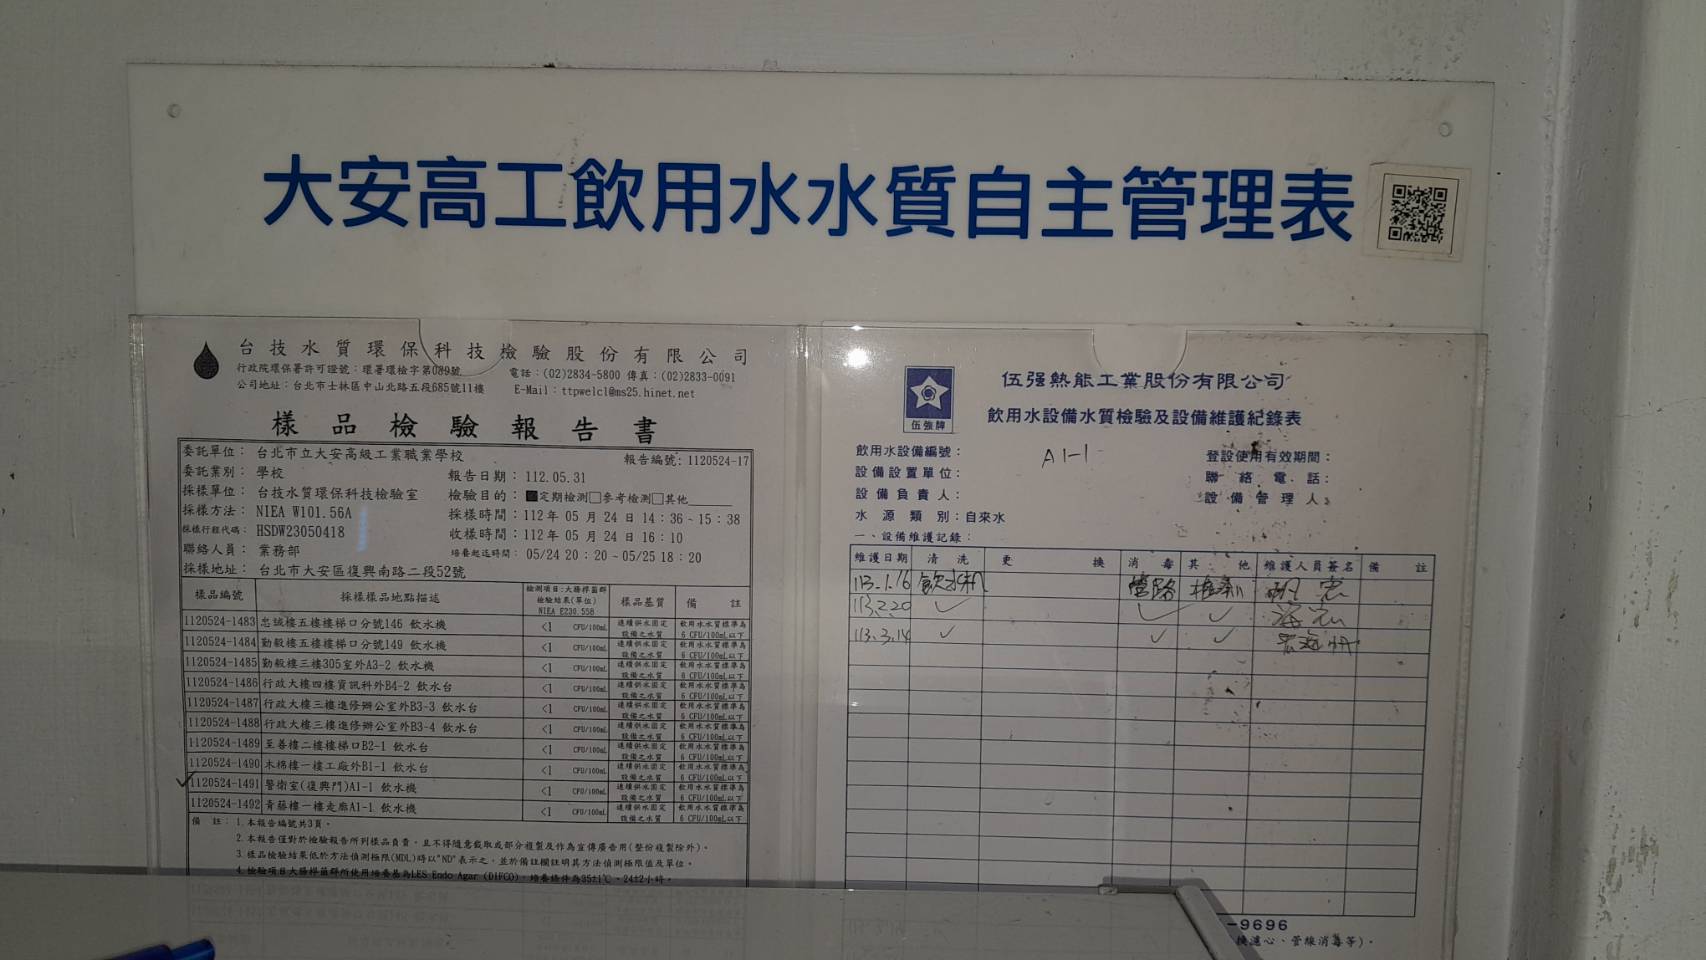 大安高工飲用水水質自主管理表
台技水質環保科技檢驗股份有限公司
行政院環保署許可證號：環署環檢字第089號
電話：(02)2834-5800 傳真：(02)2833-0091
公司地址：台北市士林區中山北路五段685號11樓
E-Mail：ttpwelcl@ms25.hinet.net
樣品檢驗報告書
委託單位： 台北市立大安高級工業職業學校
報告編號: 1120524-17
委託業別： 學校
報告日期： 112.05.31
採樣單位： 台技水質環保科技檢驗室
檢驗目的：■定期檢測□參考檢測□其他
採樣方法： NIEA W101.56A
採樣時間：112年 05 月 24 日 14：36 ~ 15：38
採樣行程代碼： HSDW23050418
收樣時間：112年 05 月 24 日 16：10
聯絡人員： 業務部
培養起迄時間： 05/24 20：20 ~ 05/25 18：20
採樣地址： 台北市大安區復興南路二段52號
樣品編號 採樣樣品地點描述 檢測項目:大腸桿菌群 檢驗結果(單位) NIEA E230.55B 樣品基質 備 註
1120524-1483 忠誠樓五樓樓梯口分號146 飲水機 <1 CFU/100mL 連續供水固定設備之水質 飲用水水質標準為6 CFU/100mL以下
1120524-1484 勤毅樓五樓樓梯口分號149 飲水機 <1 CFU/100mL 連續供水固定設備之水質 飲用水水質標準為6 CFU/100mL以下
1120524-1485 勤毅樓三樓305室外A3-2 飲水機 <1 CFU/100mL 連續供水固定設備之水質 飲用水水質標準為6 CFU/100mL以下
1120524-1486 行政大樓四樓資訊科外B4-2 飲水台 <1 CFU/100mL 連續供水固定設備之水質 飲用水水質標準為6 CFU/100mL以下
1120524-1487 行政大樓三樓進修辦公室外B3-3 飲水台 <1 CFU/100mL 連續供水固定設備之水質 飲用水水質標準為6 CFU/100mL以下
1120524-1488 行政大樓三樓進修辦公室外B3-4 飲水台 <1 CFU/100mL 連續供水固定設備之水質 飲用水水質標準為6 CFU/100mL以下
1120524-1489 至善樓二樓樓梯口B2-1 飲水台 <1 CFU/100mL 連續供水固定設備之水質 飲用水水質標準為6 CFU/100mL以下
1120524-1490 木棉樓一樓工廠外B1-1 飲水台 <1 CFU/100mL 連續供水固定設備之水質 飲用水水質標準為6 CFU/100mL以下
1120524-1491 警衛室(復興門)A1-1 飲水機 <1 CFU/100mL 連續供水固定設備之水質 飲用水水質標準為6 CFU/100mL以下
1120524-1492 青藤樓一樓走廊A1-1 飲水機 <1 CFU/100mL 連續供水固定設備之水質 飲用水水質標準為6 CFU/100mL以下
備 註： 1.本報告編號共3頁。
2.本報告僅對於檢驗報告所列樣品負責，且不得隨意截取或部分複製及作為宣傳廣告用(整份複製除外)。
3.樣品檢驗結果低於方法偵測極限(MDL)時以"ND"表示之，並於備註欄註明其方法偵測極限值及單位。
4.檢驗項目大腸桿菌群所使用培養基為LES Endo Agar (DIFCO)，培養條件為35±1℃、24±2小時。
伍強牌
伍强熱能工業股份有限公司
飲用水設備水質檢驗及設備維護紀錄表
飲用水設備編號： A1-1
登設使用有效期間：
設備設置單位：
聯絡電話：
設備負責人：
設備管理人：
水源類別：自來水
一、設備維護記錄：
維護日期 清洗 更換 消毒 其他 維護人員簽名 備註
113.1.16 飲水机 管路
113.2.20 ✓ ✓ ✓
113.3.14 ✓ ✓ ✓
-9696
換濾心、管線消毒等)。